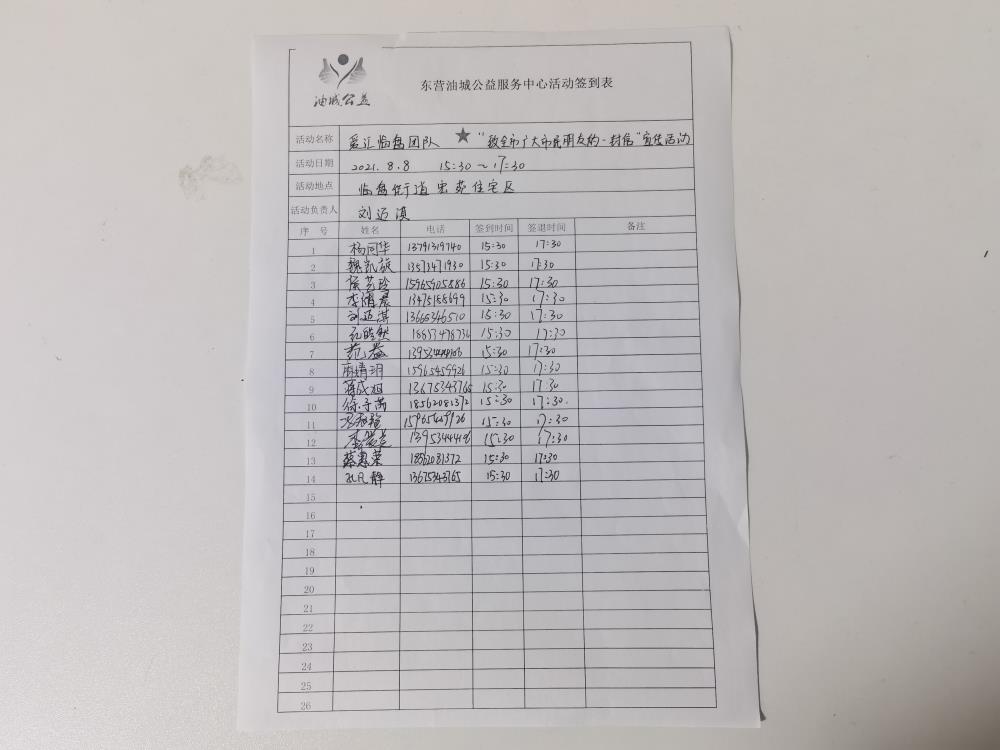 油城公益
东营油城公益服务中心活动签到表
活动名称 爱汇临盘团队 ★ "致全市广大市民朋友的一封信"宣传活动
活动日期 2021.8.8 15:30~17:30
活动地点 临盘街道宏苑住宅区
活动负责人 刘迈淇
序号 姓名 电话 签到时间 签退时间 备注
1 杨同华 13791319740 15:30 17:30
2 魏凯旋 13573471930 15:30 17:30
3 15965905886 15:30 17:30
4 13475188699 15:30 17:30
5 刘迈淇 13665346510 15:30 17:30
6 孔皓然 18853478736 15:30 17:30
7 范蕊 15:30 17:30
8 15965459926 15:30 17:30
9 13675343765 15:30 17:30
10 徐子茜 18562081372 15:30 17:30.
11 15965459926 15:30 17:30
12 13953444106 15:30 17:30
13 蔡惠荣 18562081372 15:30 17:30
14 孔凡静 13675343765 15:30 17:30
15
16
17
18
19
20
21
22
23
24
25
26